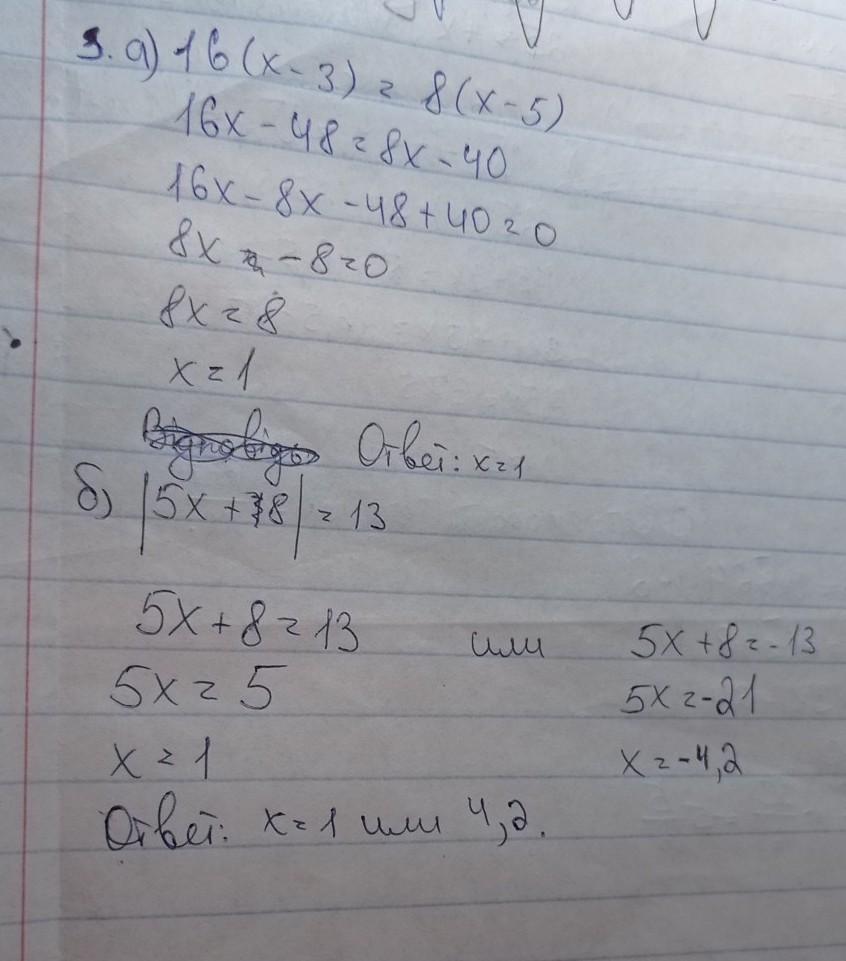 3. а) 16(x-3) = 8(x-5)
16x - 48 = 8x - 40
16x - 8x - 48 + 40 = 0
8x - 8 = 0
8x = 8
x = 1
Ответ: x=1
б) |5x + 8| = 13
5x + 8 = 13 или 5x + 8 = -13
5x = 5 5x = -21
x = 1 x = -4,2
Ответ: x = 1 или 4,2.